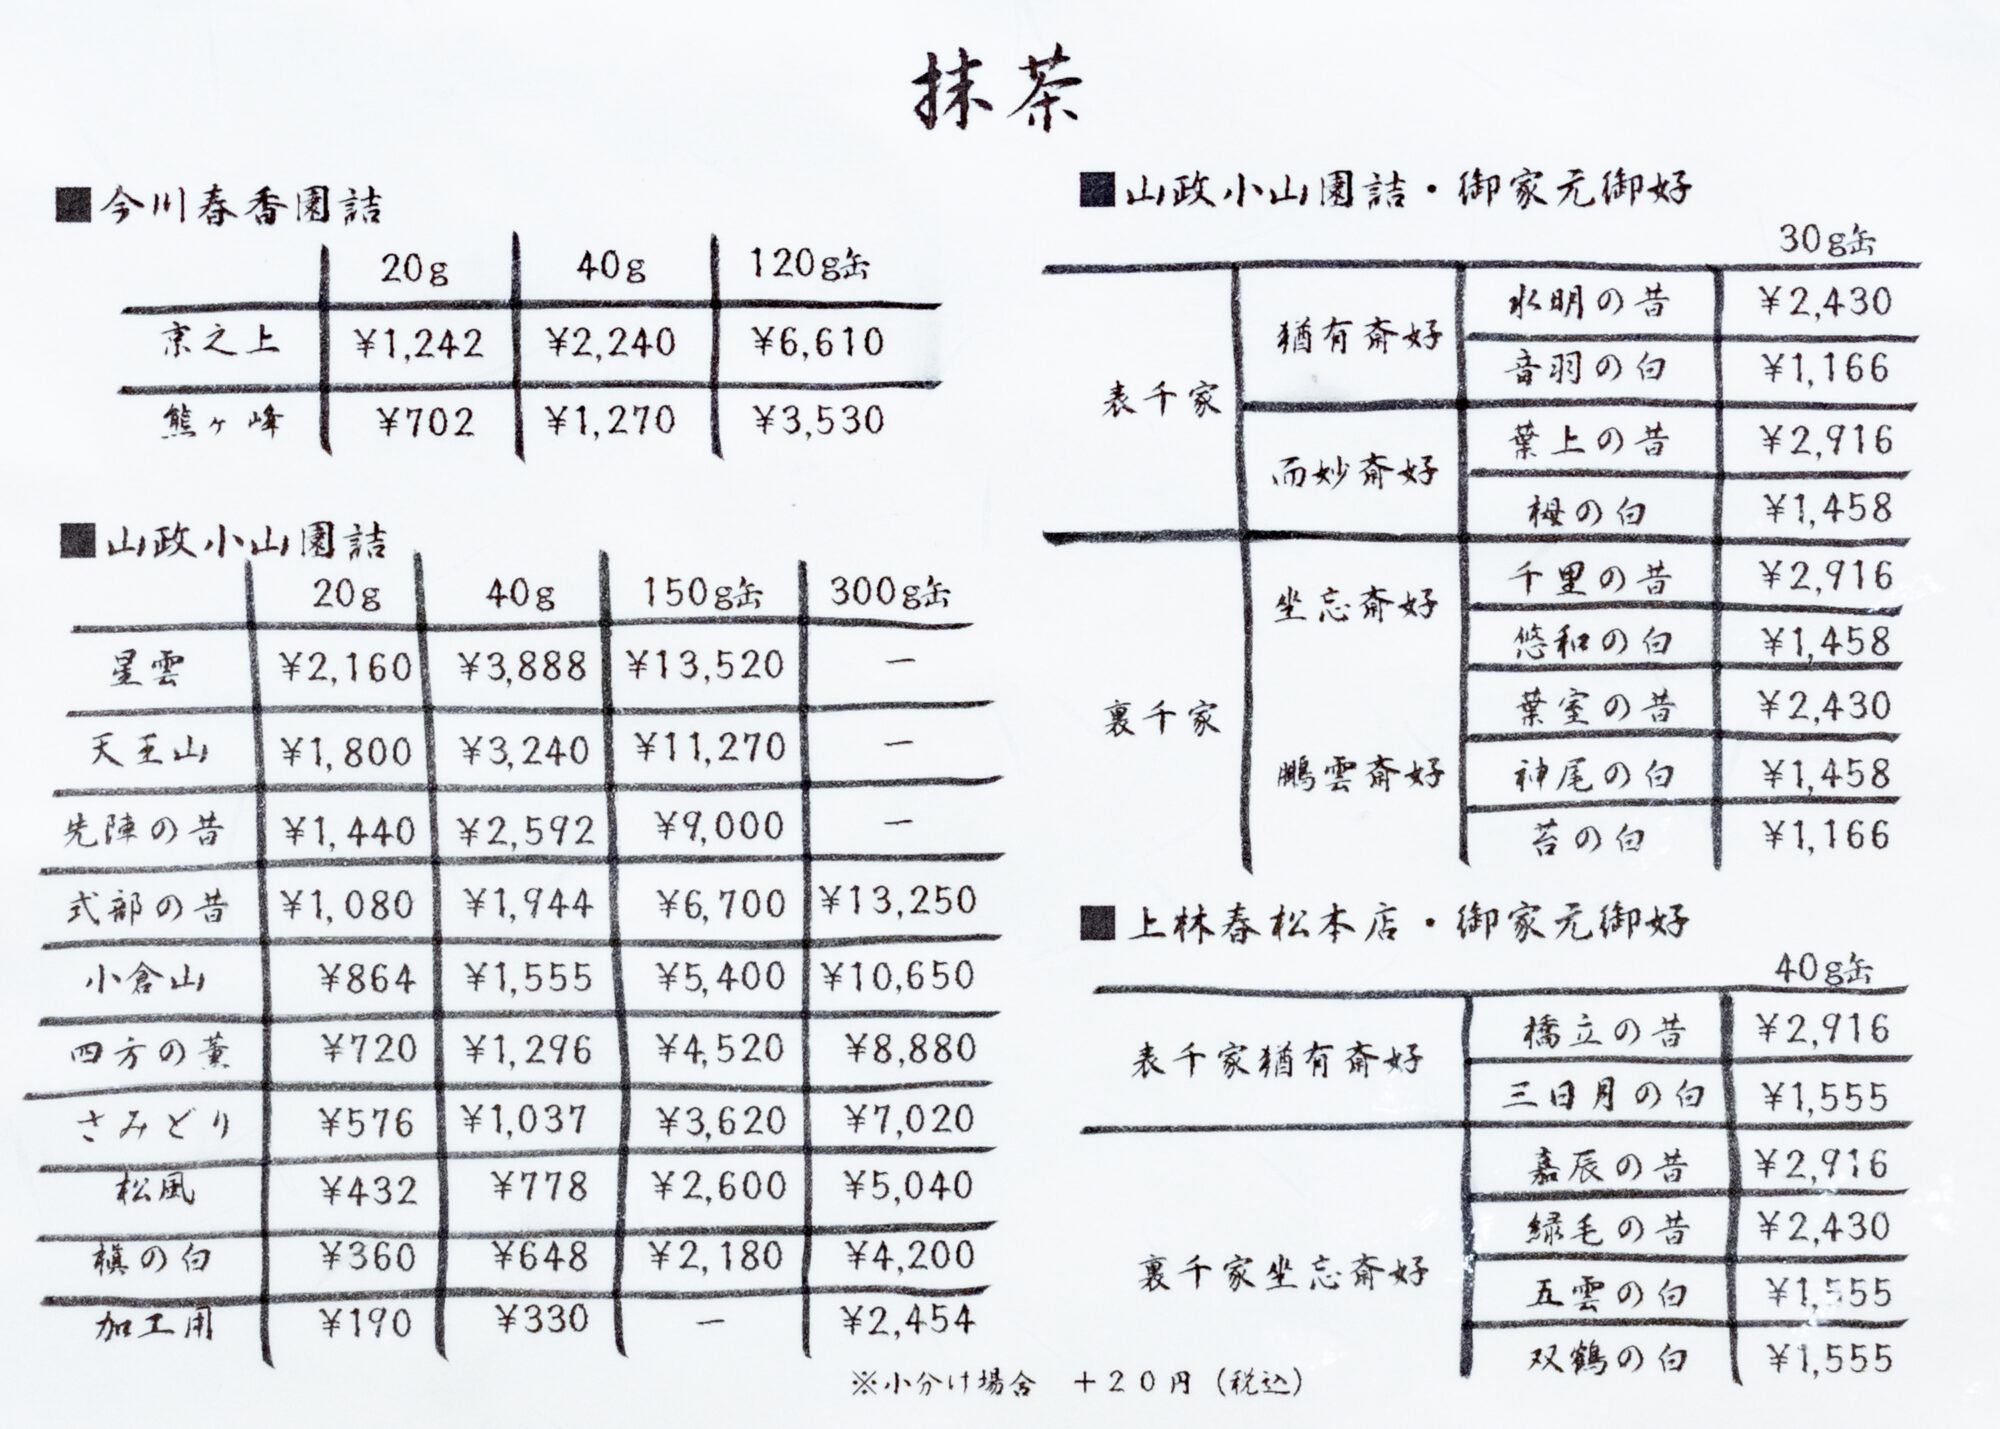 抹茶
■今川春香園詰
20g 40g 120g缶
京之上 ¥1,242 ¥2,240 ¥6,610
熊ヶ峰 ¥702 ¥1,270 ¥3,530
■山政小山園詰
20g 40g 150g缶 300g缶
星雲 ¥2,160 ¥3,888 ¥13,520 ー
天王山 ¥1,800 ¥3,240 ¥11,270 ー
先陣の昔 ¥1,440 ¥2,592 ¥9,000 ー
式部の昔 ¥1,080 ¥1,944 ¥6,700 ¥13,250
小倉山 ¥864 ¥1,555 ¥5,400 ¥10,650
四方の薫 ¥720 ¥1,296 ¥4,520 ¥8,880
さみどり ¥576 ¥1,037 ¥3,620 ¥7,020
松風 ¥432 ¥778 ¥2,600 ¥5,040
槇の白 ¥360 ¥648 ¥2,180 ¥4,200
加工用 ¥190 ¥330 ー ¥2,454
■山政小山園詰・御家元御好
30g缶
表千家 猶有斎好 水明の昔 ¥2,430
音羽の白 ¥1,166
而妙斎好 葉上の昔 ¥2,916
栂の白 ¥1,458
裏千家 坐忘斎好 千里の昔 ¥2,916
悠和の白 ¥1,458
鵬雲斎好 葉室の昔 ¥2,430
神尾の白 ¥1,458
苔の白 ¥1,166
■上林春松本店・御家元御好
40g缶
表千家猶有斎好 橋立の昔 ¥2,916
三日月の白 ¥1,555
裏千家坐忘斎好 嘉辰の昔 ¥2,916
緑毛の昔 ¥2,430
五雲の白 ¥1,555
双鶴の白 ¥1,555
※小分け場合 +20円(税込)